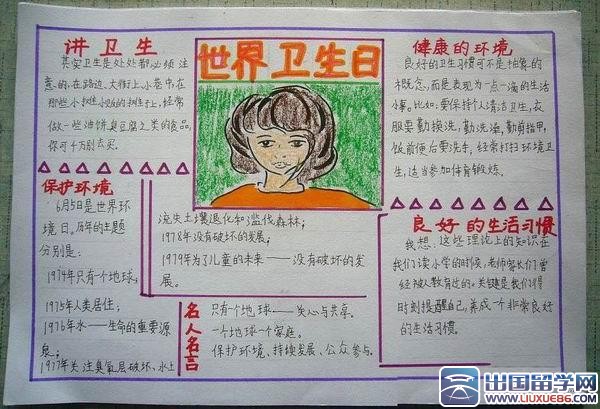 讲卫生
其实卫生是处处都必须注
意的,在路边、大街上小巷中,在
那些小摊小贩的摊位上,经常
做一些油饼,臭豆腐之类的食品,
你可千万别去买。
世界卫生日
健康的环境
良好的卫生习惯可不是抽象的
概念,而是表现为一点一滴的生活
小事。比如:要保持个人清洁卫生,衣
服要勤换洗,勤洗澡,勤剪指甲,
饭前便后要洗手,经常打扫环境卫
生,适当参加体育锻炼。
保护环境
6月5日是世界环
境日。历年的主题
分别是:
1974年只有个地球;
1975年人类居住;
1976年水——生命的重要源
泉;
1977年关注臭氧层破坏、水土
流失土壤退化和滥伐森林;
1978年没有破坏的发展;
1979年为了儿童的未来——没有破坏的发
展。
名人名言
只有个地球——关心与共享。
一个地球一个家庭。
保护环境、持续发展、公众参与。
良好的生活习惯
我想,这些理论上的知识在
我们读小学的时候,老师家长们曾
经被人教育过的。关键是我们得
时刻提醒自己,养成一个非常良好
的生活习惯。
出国留学网
WWW.LIUXUE86.COM